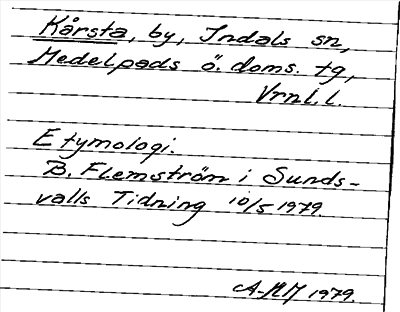 Kårsta, by, Indals sn,
Medelpads ö. doms. tg,
Vrnl. l.
Etymologi.
B. Flemström i Sunds-
valls Tidning 10/5 1979.
A-MM 1979.